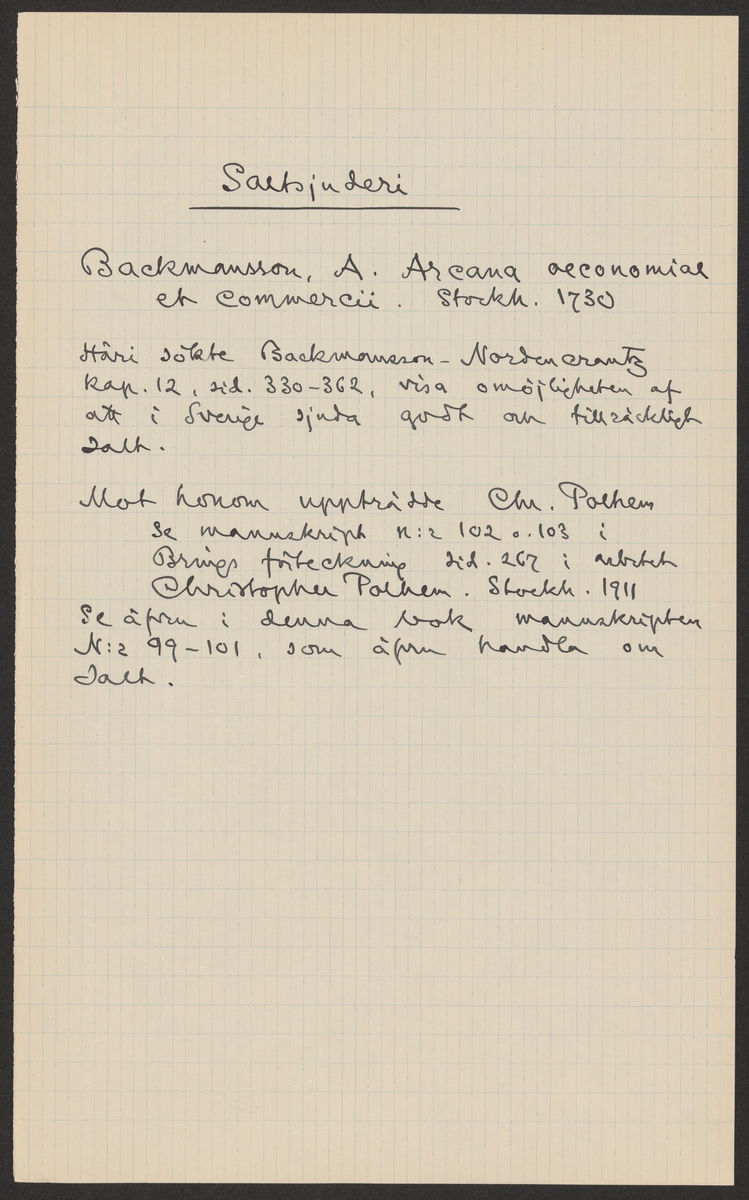 Saltsjuderi
Backmansson, A. Arcana oeconomiae
et commercii. Stockh. 1730
Häri sökte Backmansson-Nordencrantz
kap. 12, sid. 330-362, visa omöjligheten af
att i Sverige sjuda godt och tillräckligt
Salt.
Mot honom uppträdde Chr. Polhem
Se manuskript n:r 102 o. 103 i
Brings förteckning sid. 267 i arbetet
Christopher Polhem. Stockh. 1911
Se äfven i denna bok manuskripten
N:r 99-101, som äfven handla om
Salt.